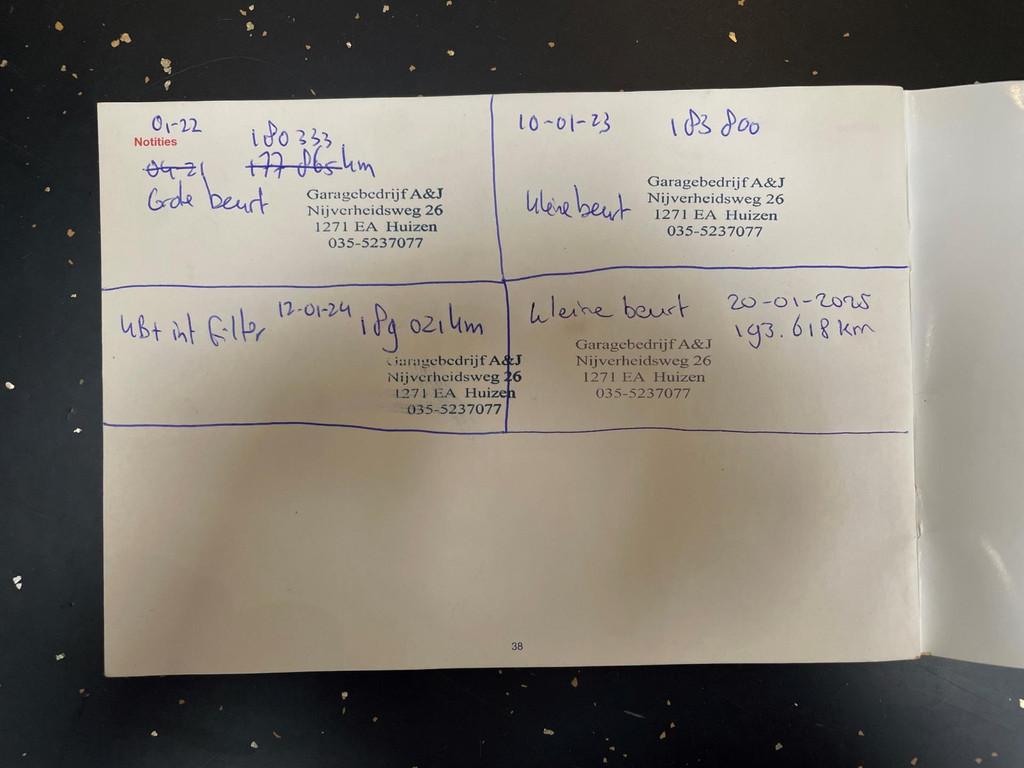 01-22
Notities
180 333
04-21 177 865 km
Grote beurt
Garagebedrijf A&J
Nijverheidsweg 26
1271 EA Huizen
035-5237077
10-01-23 183 800
Kleine beurt
Garagebedrijf A&J
Nijverheidsweg 26
1271 EA Huizen
035-5237077
KB+ int filter 12-01-24 189 021 km
Garagebedrijf A&J
Nijverheidsweg 26
1271 EA Huizen
035-5237077
Kleine beurt 20-01-2025
193.618 km
Garagebedrijf A&J
Nijverheidsweg 26
1271 EA Huizen
035-5237077
38